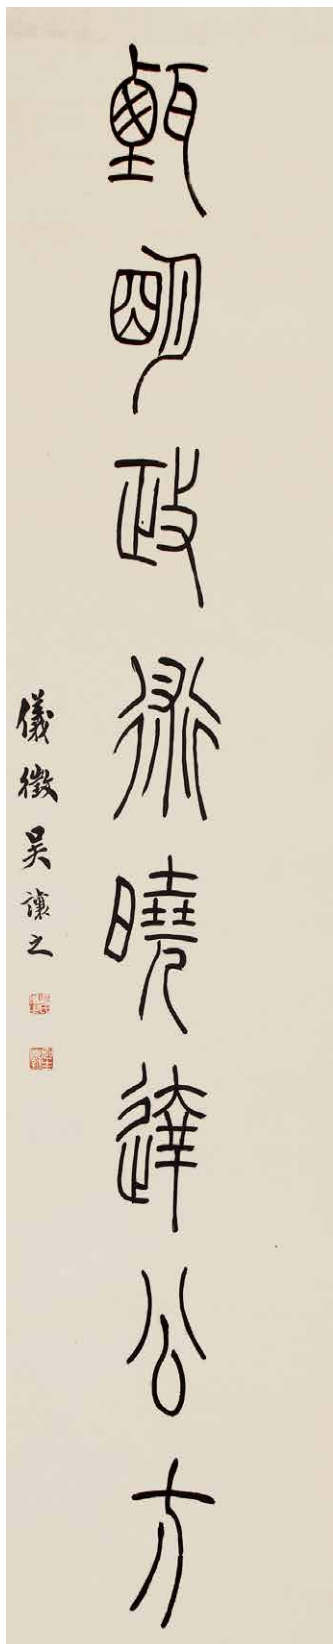 甄明政術曉達公方
儀徵吳讓之